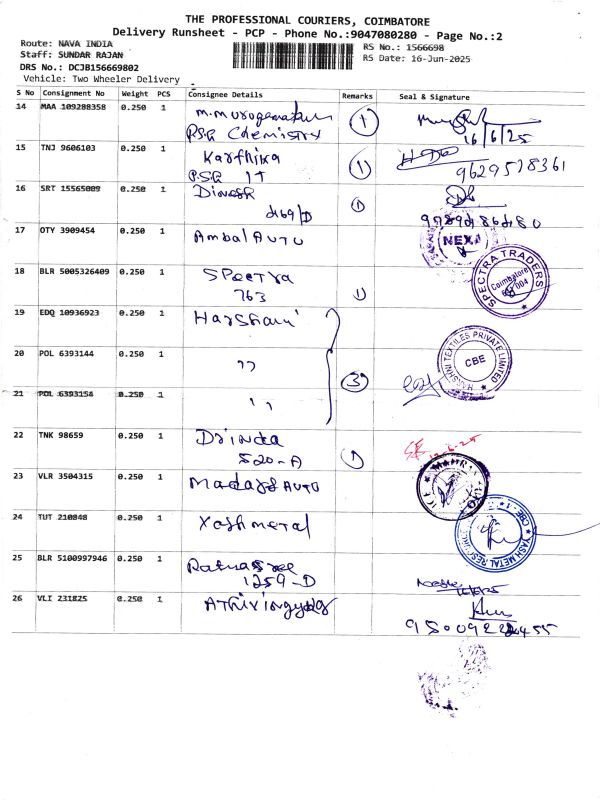 THE PROFESSIONAL COURIERS, COIMBATORE
Delivery Runsheet - PCP - Phone No.:9047080280 - Page No.:2
Route: NAVA INDIA
RS No.: 1566698
Staff: SUNDAR RAJAN
RS Date: 16-Jun-2025
DRS No.: DCJB156669802
Vehicle: Two Wheeler Delivery
S No Consignment No Weight PCS Consignee Details Remarks Seal & Signature
14 MAA 109288358 0.250 1
PSG Chemistry 1
16/6/25
15 TNJ 9606103 0.250 1 Karthika 1
P.SG IT
9629578361
16 SRT 15565009 0.250 1 Dinesh 1
17 OTY 3909454 0.250 1 Ambal AUTO
NEXA
18 BLR 5005326409 0.250 1 Spectra
763 1
SPECTRA TRADERS
Coimbatore
19 EDQ 10936923 0.250 1 Harshani
20 POL 6393144 0.250 1 " 3
HARSHNI TEXTILES PRIVATE LIMITED
CBE
21 POL 6393154 0.250 1 "
22 TNK 98659 0.250 1
520-A 1
23 VLR 3504315 0.250 1 AUTO
24 TUT 210848 0.250 1 Yash metal
YASH METAL
CBE
25 BLR 5100997946 0.250 1
1259-D
26 VLI 231825 0.250 1